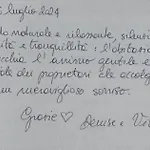 luglio 2024
naturale e rilassante, silenzio
e tranquillità : l'abitazione
l'animo gentile e
dei proprietari che accolgono
un meraviglioso sorriso.
Grazie ♡ Denise e